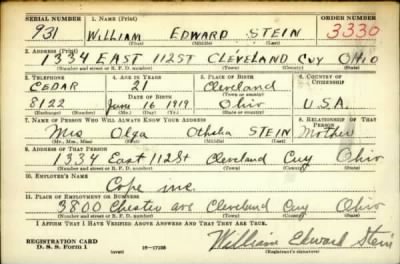 SERIAL NUMBER 1. NAME (Print) ORDER NUMBER
931 WILLIAM EDWARD STEIN 3330
(First) (Middle) (Last)
2. ADDRESS (Print)
1334 EAST 112ST CLEVELAND CUY OHIO
(Number and street or R. F. D. number) (Town) (County) (State)
3. TELEPHONE 4. AGE IN YEARS 5. PLACE OF BIRTH 6. COUNTRY OF CITIZENSHIP
CEDAR 21 Cleveland
DATE OF BIRTH (Town or county)
8122 June 16 1919 Ohio U.S.A.
(Exchange) (Number) (Mo.) (Day) (Yr.) (State or country)
7. NAME OF PERSON WHO WILL ALWAYS KNOW YOUR ADDRESS 8. RELATIONSHIP OF THAT PERSON
Mrs Olga STEIN Mother
(Mr., Mrs., Miss) (First) (Middle) (Last)
9. ADDRESS OF THAT PERSON
1334 East 112St Cleveland Cuy Ohio
(Number and street or R. F. D. number) (Town) (County) (State)
10. EMPLOYER'S NAME
Cope inc.
11. PLACE OF EMPLOYMENT OR BUSINESS
3800 Chester ave Cleveland Cuy Ohio
(Number and street or R. F. D. number) (Town) (County) (State)
I AFFIRM THAT I HAVE VERIFIED ABOVE ANSWERS AND THAT THEY ARE TRUE.
REGISTRATION CARD
D. S. S. Form 1 (over) 16—17105 William Edward Stein
(Registrant's signature)